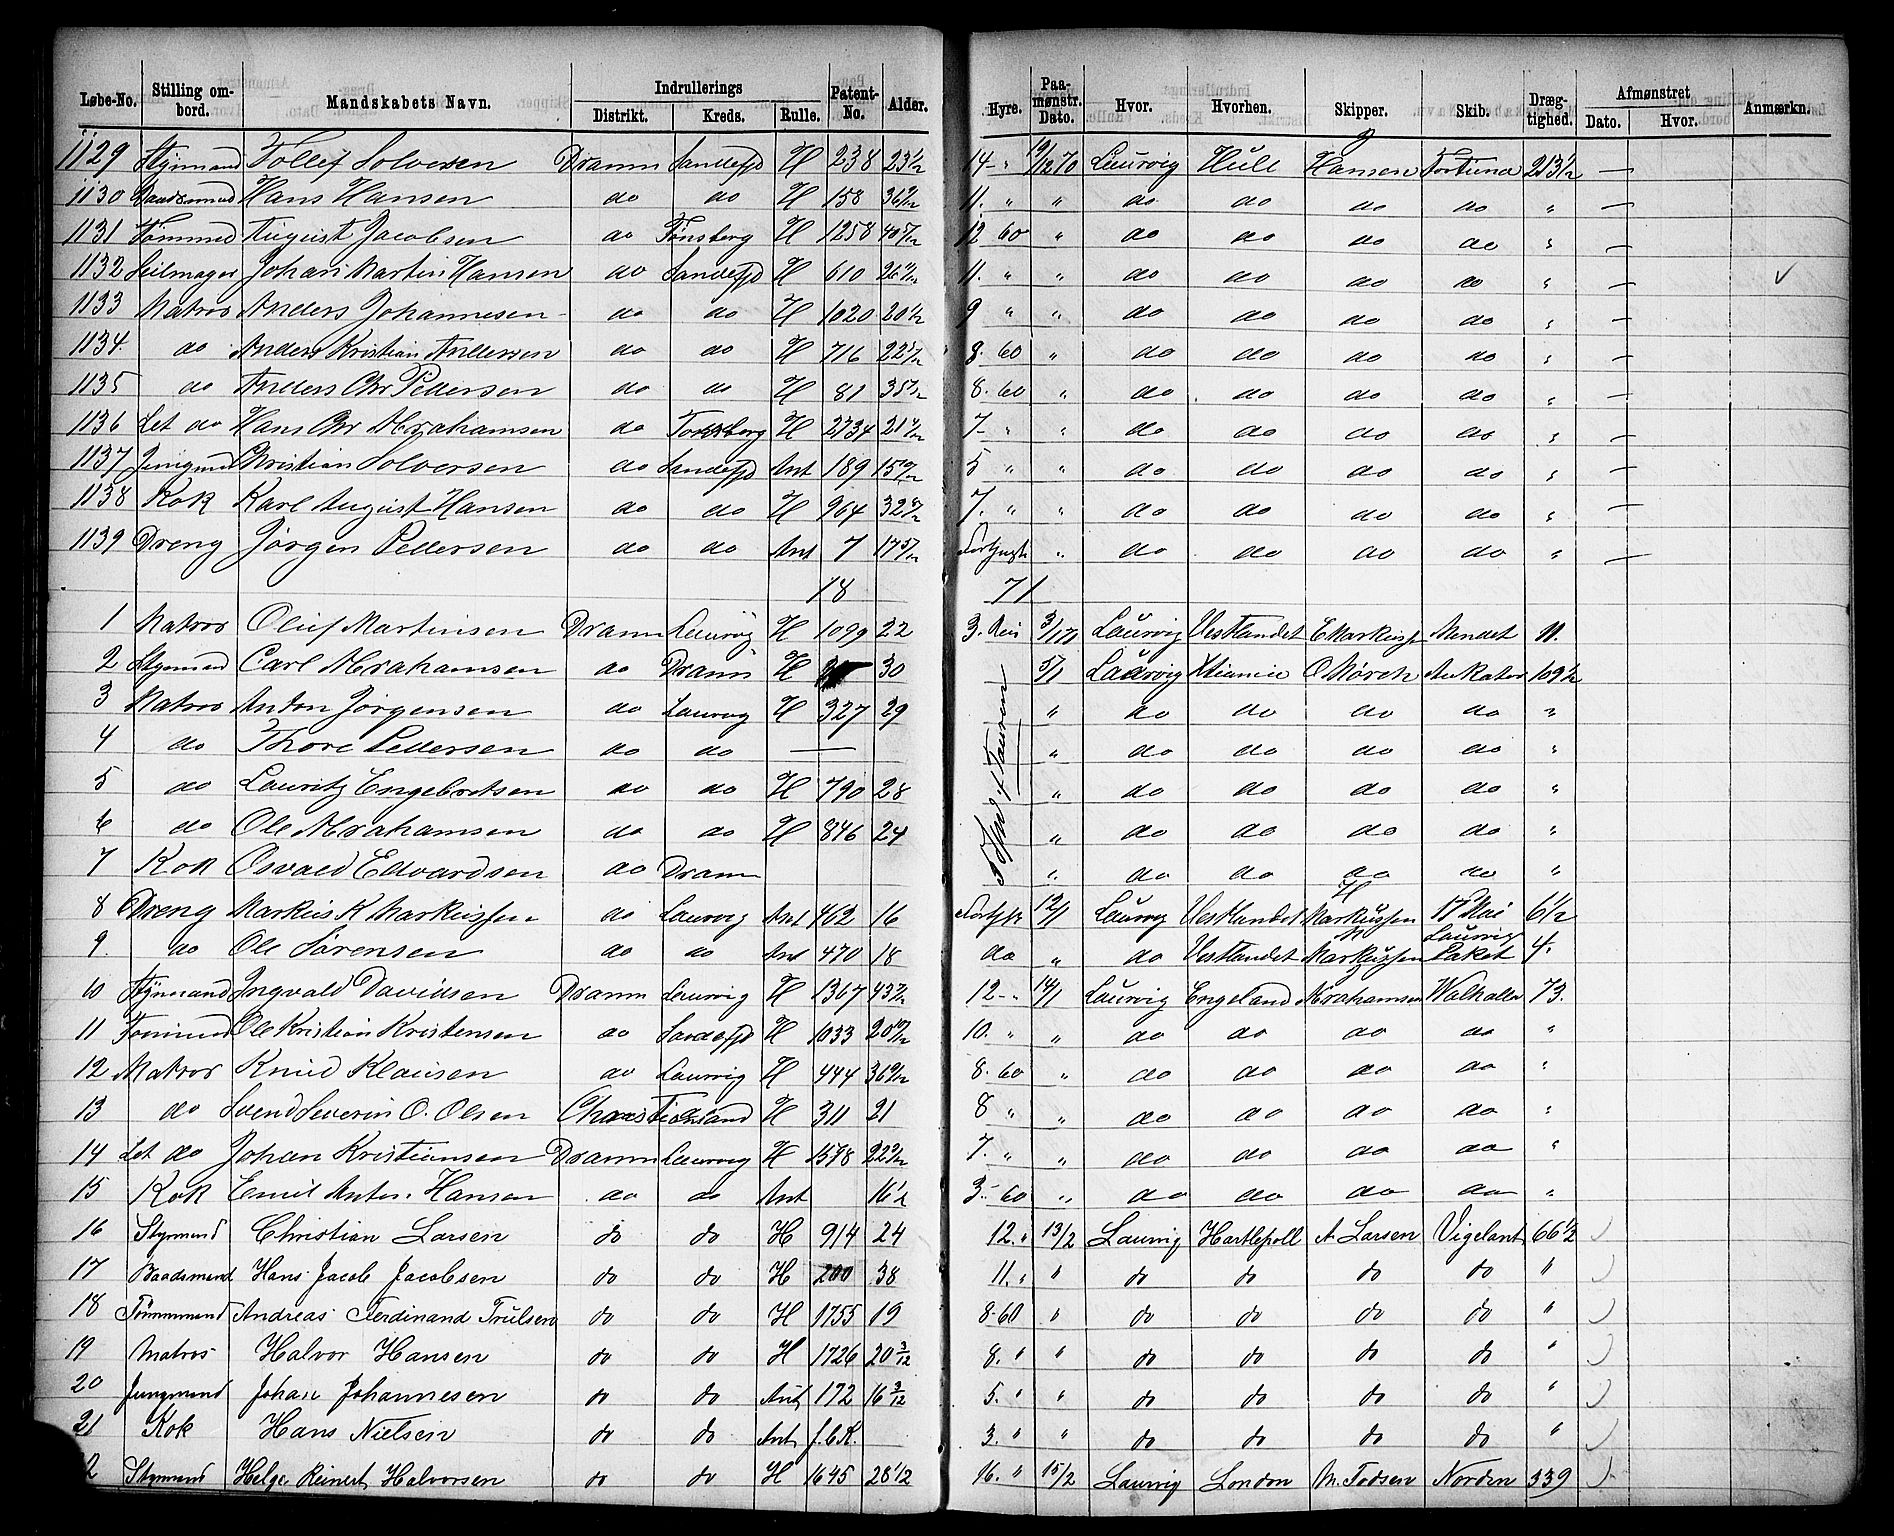 Løbe-No. Stilling ombord. Mandskabets Navn. Indrullerings Distrikt. Kreds. Rulle. Patent-No. Alder. Hyre. Paamønstr. Dato. Hvor. Hvorhen. Skipper. Skib. Drægtighed. Afmønstret Dato. Hvor. Anmærkn.
1129 Styrmand Tollef Solversen Dramm Sandefjd H 238 23 1/2 14 - " 19/12 70 Laurvig Hull Hansen Fortuna 213 1/2 —
1130 Baadsmand Hans Hansen do do H 158 11. " " do do do do " —
1131 Tømmmd August Jacobsen do Tønsberg H 1258 12 60 " do do do do " —
1132 Seilmager Johan Martin Hansen do Sandefjd H 610 11. " " do do do do " — ✓
1133 Matros Anders Johannesen do do H 1020 20 1/2 9 " " do do do do " —
1134. do Anders Kristian Andersen do do H 716 8. 60 " do do do do " —
1135 do Anders Chr Pedersen do do H 81 8. 60 " do do do do " —
1136 Let do Hans Chr Abrahamsen do Tønsberg H 2734 7 - " " do do do do " —
1137 Jungmd Christian Solversen do Sandefjd Ant 189 5 " " do do do do " —
1138 Kok Karl August Hansen do do H 964 7. " " do do do do " —
1139 Dreng Jørgen Pedersen do do Ant 7 17 5/12 " do do do do " —
18 71
1 Matros Oluf Martinsen Dramm Laurvig H 1099 22 3. 3/1 71 Laurvig Vestlandet E Markussen 11.
2 Styrmand Carl Abrahamsen do Dramm H 30 5/1 Laurvig Xtiania O Mørch 109 1/2
3 Matros Anton Jørgensen do Laurvig H 327 29 " do do do do "
4 do Thore Pedersen do do — " do do do do "
5 do Lauritz Engebretsen do do H 790 28 " do do do do "
6 do Ole Abrahamsen do do H 846 24 " do do do do "
7 Kok Osvald Edvardsen do Dramm " do do do do "
8 Dreng Markus K Markussen do Laurvig Ant 462 16 12/1 Laurvig Vestlandet H Markussen 17 Mai 6 1/2
9. do Ole Sørensen do do Ant 470 18 do " do Vestlandet Markussen Laurvigs Paket 4.
10 Styrmand Ingvald Davidsen Dramm Laurvig H 1367 12 - " 14/1 Laurvig Engeland Abrahamsen Walhalla 73.
11 Tømmmd Ole Kristian Kristensen do Sandefjd H 1033 10. " " do do do do "
12 Matros Knud Klausen do Laurvig H 444 8. 60 " do do do do "
13 do Svend Severin O. Olsen Christiansand H 311 21 8 " " do do do do "
14 Let do Johan Kristiansen Dramm Laurvig H 1578 7. " " do do do do "
15 Kok Emil Anton Hansen do do Ant 16 1/2 3. 60 " do do do do "
16 Styrmand Christian Larsen do do H 914 24 12. " 13/2 Laurvig Hartlepoll A Larsen Vigelant 66 1/2
17 Baadsmand Hans Jacob Jacobsen do do H 200 38 11. " " do do do do "
18 Tømmmand Andreas Ferdinand Trulsen do do H 1755 19 8. 60 " do do do do "
19 Matros Halvor Hansen do do H 1726 20 3/12 8. " " do do do do "
20 Jungmand Johan Johannesen do do Ant 172 16 3/12 5. " " do do do do "
21 Kok Hans Nielsen do do Ant f.b.K. 3. " " do do do do "
2 Styrmand Helge Reinert Halvorsen do do H 1645 28 1/12 16. " 15/2 Laurvig London M. Todsen Norden 339